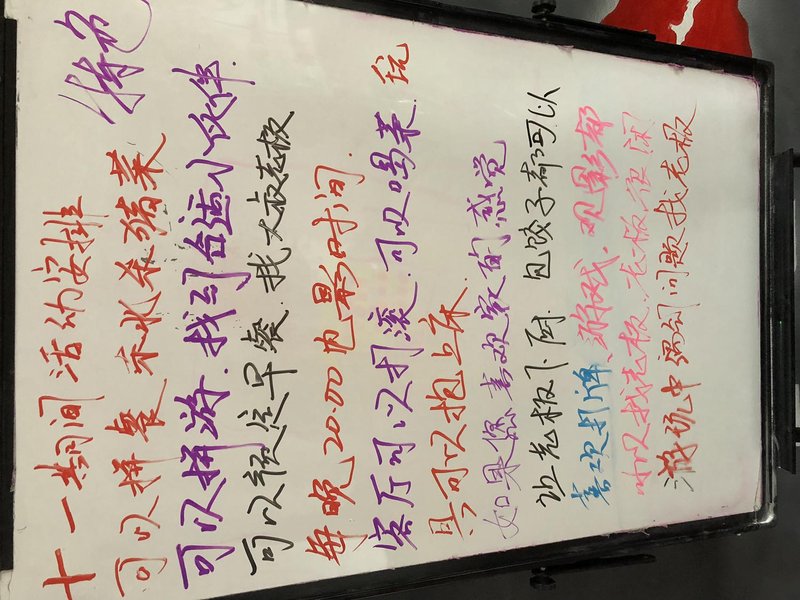 十一期间活动安排
可以拼餐 杀猪菜 特色
可以拼游.找到合适小伙伴.
可以预定早餐.找大叔老板
每晚20:00电影时间.
客厅可以打滚.可以喝茶.玩
具可以抱上床.
如果您喜欢家的感觉
让老板下厨.包饺子都可以
喜欢打牌、游戏、观影都
可以找老板、老板很闲
游玩中遇到问题找老板